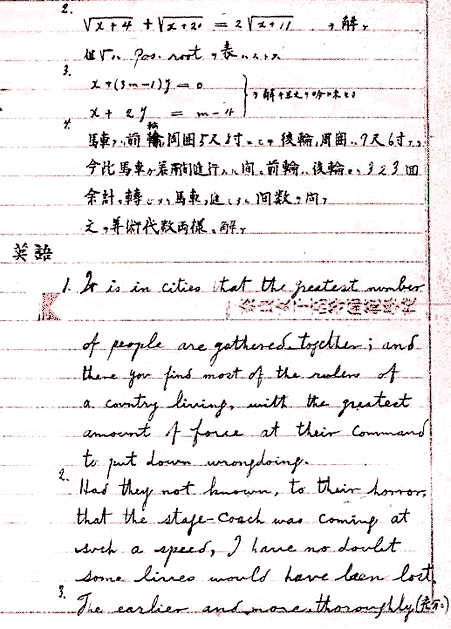 2.
√x+4 + √x+20 = 2√x+11 ヲ解ケ
但√ハ pos. root ヲ表ハス
3.
x+(3m-1)y=0
x + 2y = m-4
4.
馬車アリ前輪ノ周囲5尺8寸ニシテ後輪ノ周囲ハ7尺6寸ナリ
今此馬車ガ 間ヲ進行スル間ニ前輪ハ後輪ヨリ323回
余計ニ転ジタリ馬車ノ進ミシ間数ヲ問フ
之ヲ算術代数両様ニ解ケ
英語
1. It is in cities that the greatest number
of people are gathered together; and
there you find most of the rulers of
a country living, with the greatest
amount of force at their command
to put down wrongdoing.
2.
Had they not known, to their horror,
that the stage-coach was coming at
such a speed, I have no doubt
some lives would have been lost.
3.
The earlier and more thoroughly